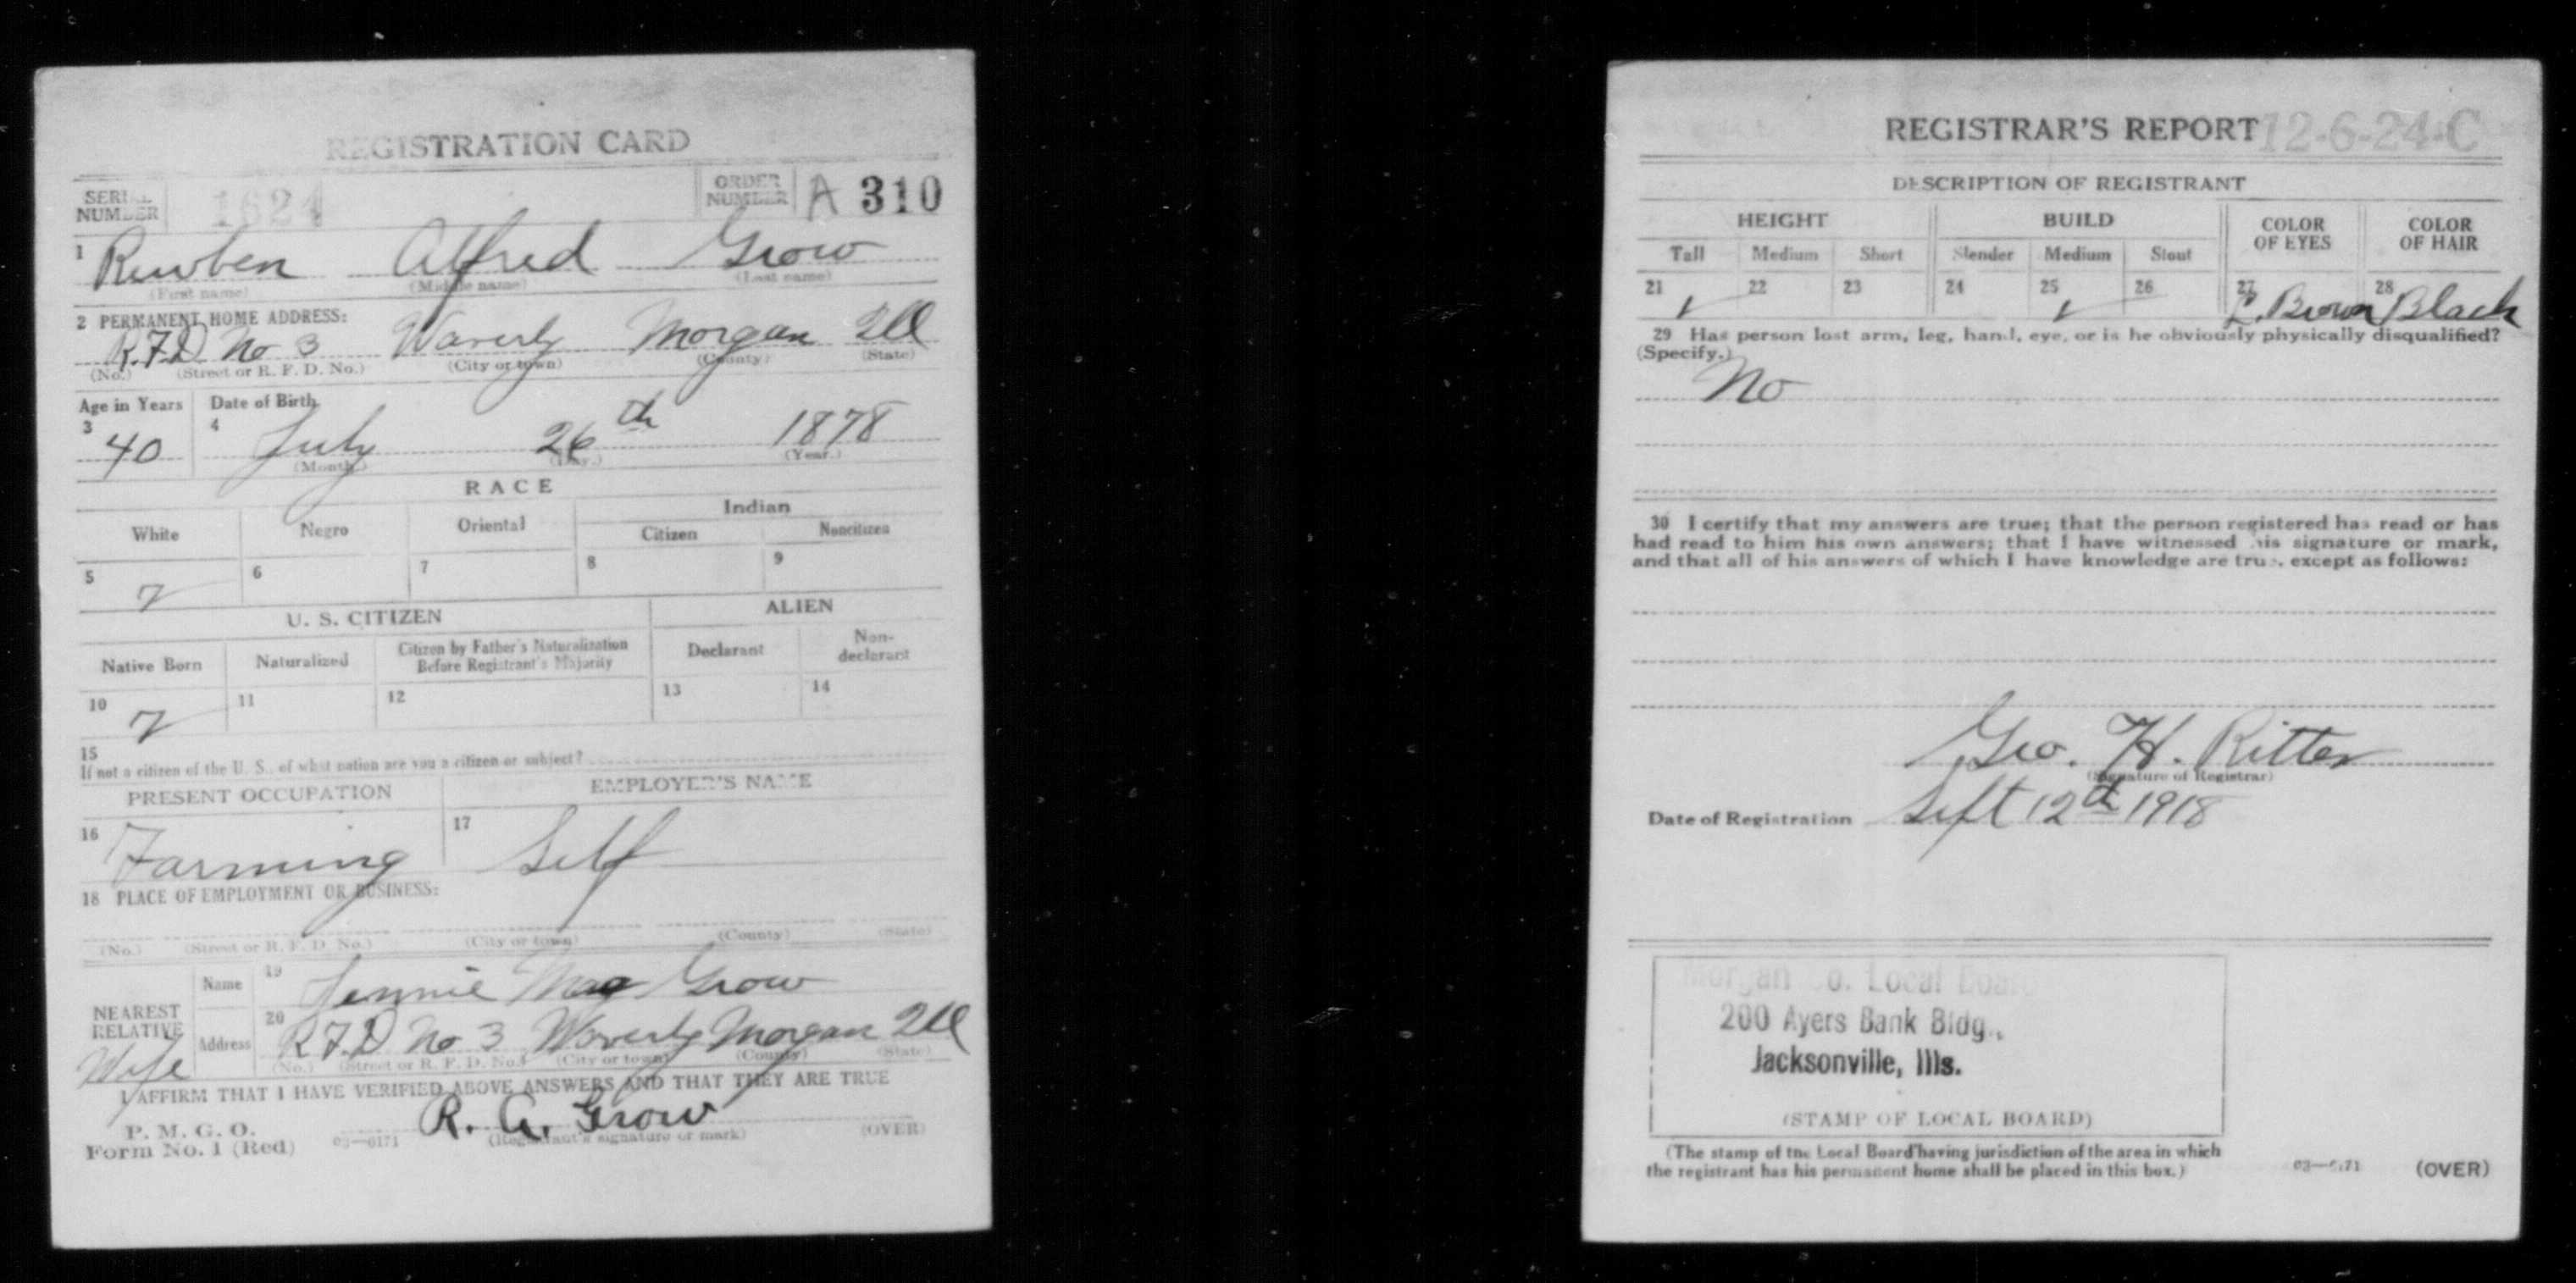 REGISTRATION CARD
SERIAL NUMBER 1624 ORDER NUMBER A 310
1 Rewben Alfred Grow
(First name) (Middle name) (Last name)
2 PERMANENT HOME ADDRESS:
R.F.D. No 3 Waverly Morgan Ill
(No.) (Street or R. F. D. No.) (City or town) (County) (State)
Age in Years Date of Birth
3 40 4 July 26th 1878
(Month.) (Day.) (Year.)
RACE
White Negro Oriental Indian
Citizen Noncitizen
5 6 7 8 9
U. S. CITIZEN ALIEN
Native Born Naturalized Citizen by Father's Naturalization Before Registrant's Majority Declarant Non-declarant
10 11 12 13 14
15
If not a citizen of the U. S., of what nation are you a citizen or subject?
PRESENT OCCUPATION EMPLOYER'S NAME
16 Farming 17 Self
18 PLACE OF EMPLOYMENT OR BUSINESS:
(No.) (Street or R. F. D. No.) (City or town) (County) (State)
NEAREST RELATIVE Name 19 Jennie Mae Grow
Wife Address 20 R.F.D No 3 Waverly Morgan Ill
(No.) (Street or R. F. D. No.) (City or town) (County) (State)
I AFFIRM THAT I HAVE VERIFIED ABOVE ANSWERS AND THAT THEY ARE TRUE
P. M. G. O.
Form No. 1 (Red) 03—6171 R. A. Grow
(Registrant's signature or mark) (OVER)
REGISTRAR'S REPORT 12-6-24-C
DESCRIPTION OF REGISTRANT
HEIGHT BUILD COLOR OF EYES COLOR OF HAIR
Tall Medium Short Slender Medium Stout
21 22 23 24 25 26 27 L. Brown 28 Black
29 Has person lost arm, leg, hand, eye, or is he obviously physically disqualified?
(Specify.)
No
30 I certify that my answers are true; that the person registered has read or has
had read to him his own answers; that I have witnessed his signature or mark,
and that all of his answers of which I have knowledge are true, except as follows:
Geo. H. Ritter
(Signature of Registrar)
Date of Registration Sept 12th 1918
Morgan Co. Local Board
200 Ayers Bank Bldg.,
Jacksonville, Ills.
(STAMP OF LOCAL BOARD)
(The stamp of the Local Board having jurisdiction of the area in which
the registrant has his permanent home shall be placed in this box.)
03—6171 (OVER)